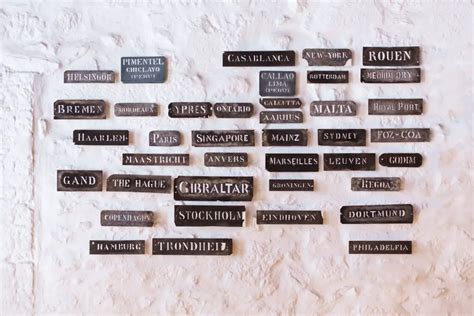 CASABLANCA
NEW-YORK
ROUEN
PIMENTEL
CHICLAYO
(PERU)
HELSINGOR
CALLAO
LIMA
(PERU)
ROTTERDAM
MEDIUM DRY
BREMEN
BORDEAUX
YPRES
ONTARIO
CALCUTTA
AARHUS
MALTA
ROYAL PORT
HAARLEM
PARIS
SINGAPORE
MAINZ
SYDNEY
FOZ-COA
MAASTRICHT
ANVERS
MARSEILLES
LEUVEN
GODIM
GAND
THE HAGUE
GIBRALTAR
GRONINGEN
REGOA
COPENHAGEN
STOCKHOLM
EINDHOVEN
DORTMUND
HAMBURG
TRONDHEIL
PHILADELFIA